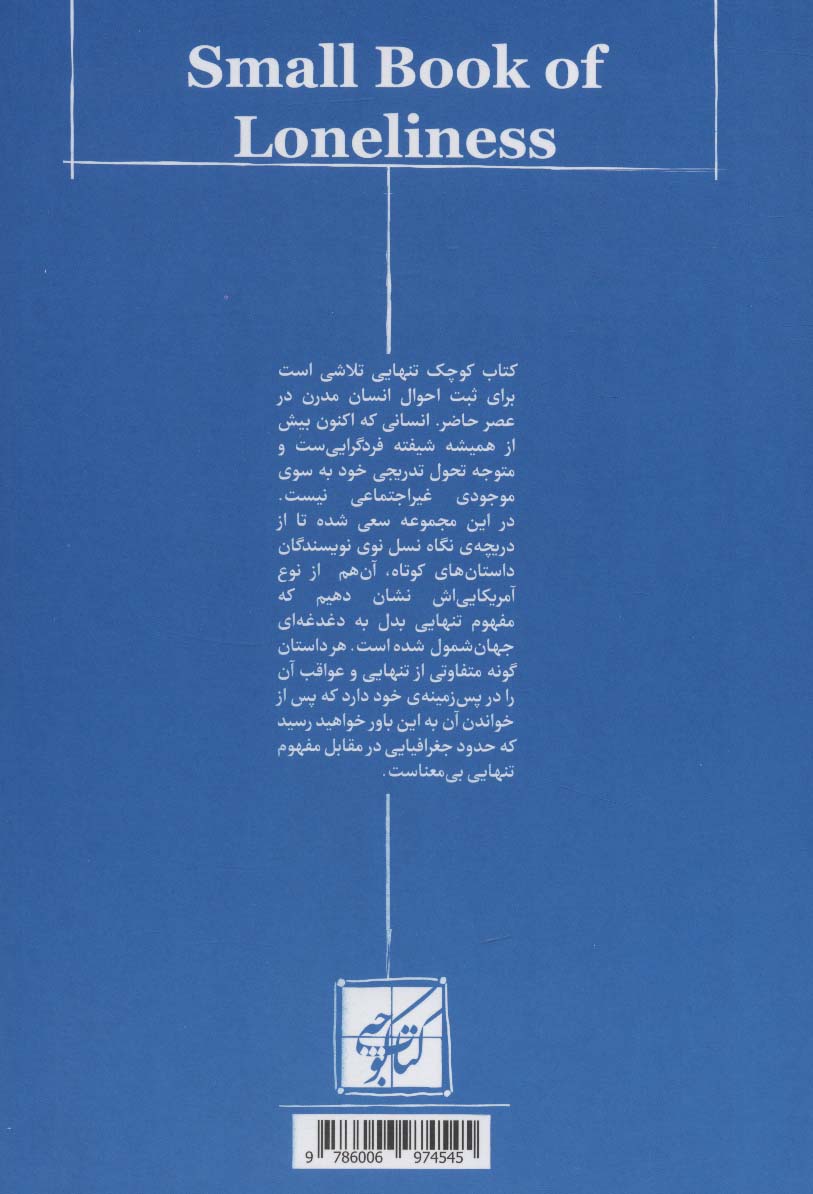 Small Book of
Loneliness
کتاب کوچک تنهایی تلاشی است
برای ثبت احوال انسان مدرن در
عصر حاضر. انسانی که اکنون بیش
از همیشه شیفته فردگرایی‌ست و
متوجه تحول تدریجی خود به سوی
موجودی غیراجتماعی نیست.
در این مجموعه سعی شده تا از
دریچه‌ی نگاه نسل نوی نویسندگان
داستان‌های کوتاه، آن‌هم از نوع
آمریکایی‌اش نشان دهیم که
مفهوم تنهایی بدل به دغدغه‌ای
جهان‌شمول شده است. هر داستان
گونه متفاوتی از تنهایی و عواقب آن
را در پس‌زمینه‌ی خود دارد که پس از
خواندن آن به این باور خواهید رسید
که حدود جغرافیایی در مقابل مفهوم
تنهایی بی‌معناست.
کتاب
9 786006 974545